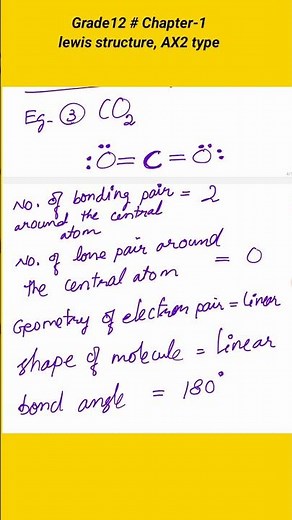 Grade12 # Chapter-1
lewis structure, AX2 type
Eg- ③ CO₂
:Ö=C=Ö:
No. of bonding pair = 2
around the central
atom
No. of lone pair around
the central atom = 0
Geometry of electron pair = linear
shape of molecule = Linear
bond angle = 180°